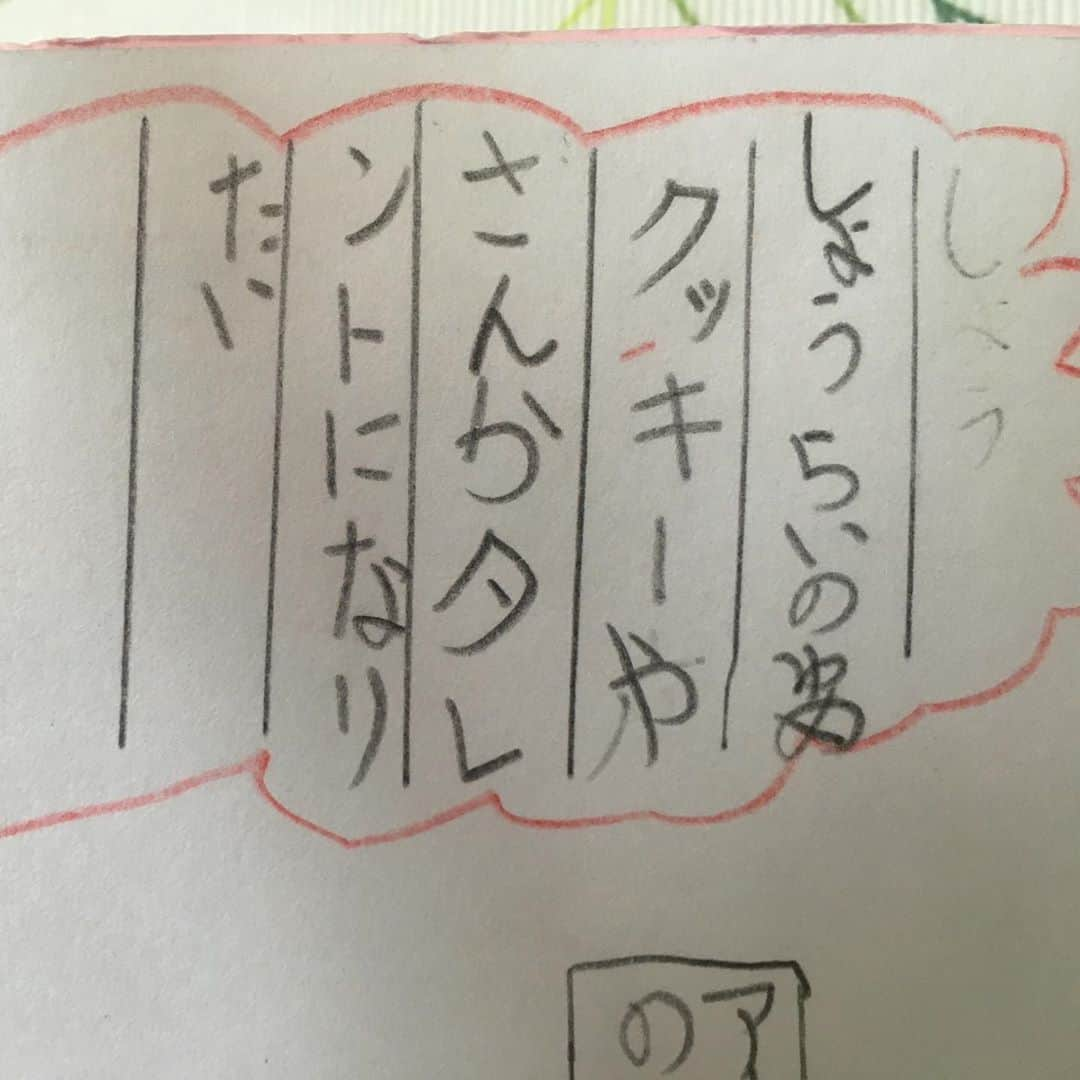 しょう
しょうらいのゆめ
クッキーや
さんかタレ
ントになり
たい
ア
の